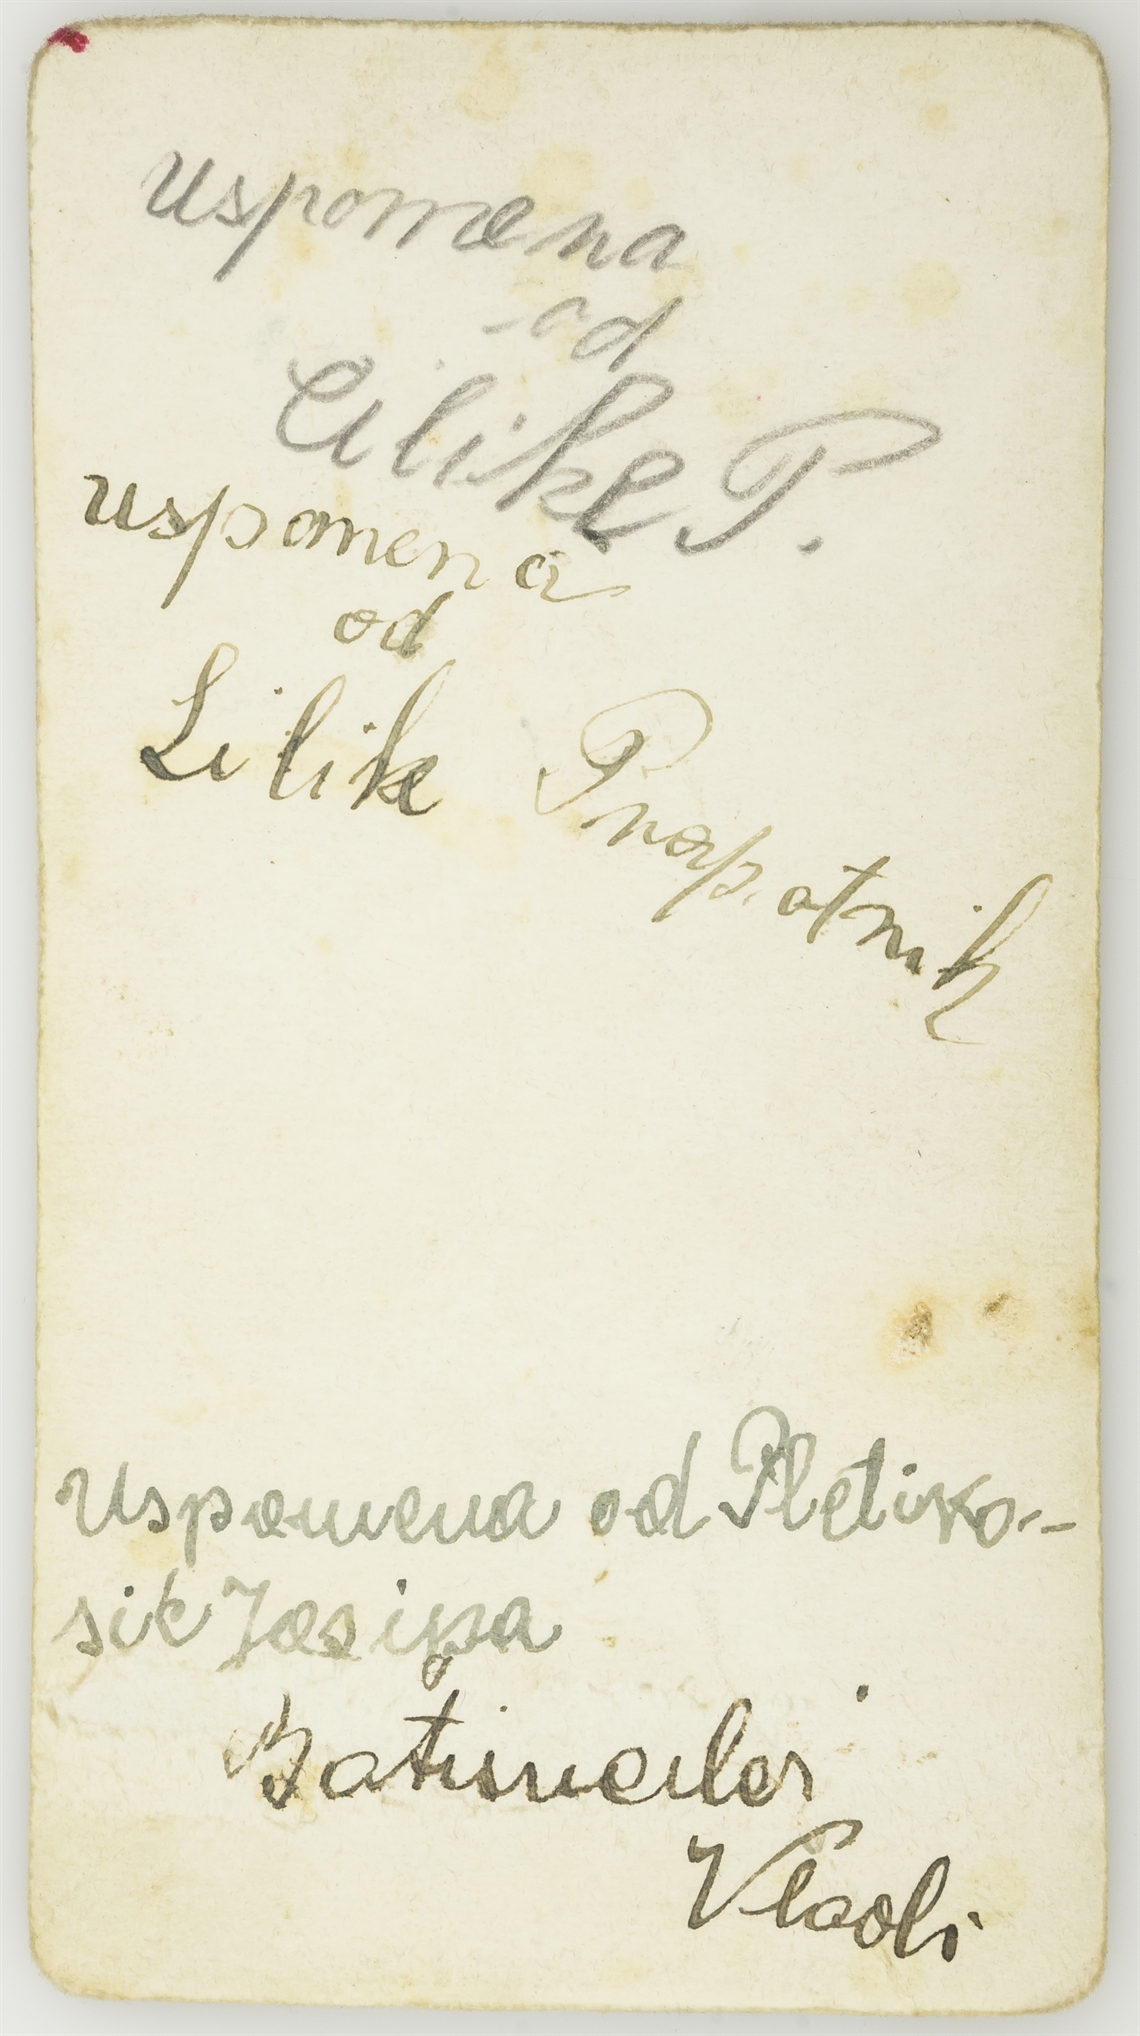 Uspomena
od
Lilike P.
Uspomena
od
Lilike Prapotnik
Uspomena od Pletiko-
sić Josipa
Vladi